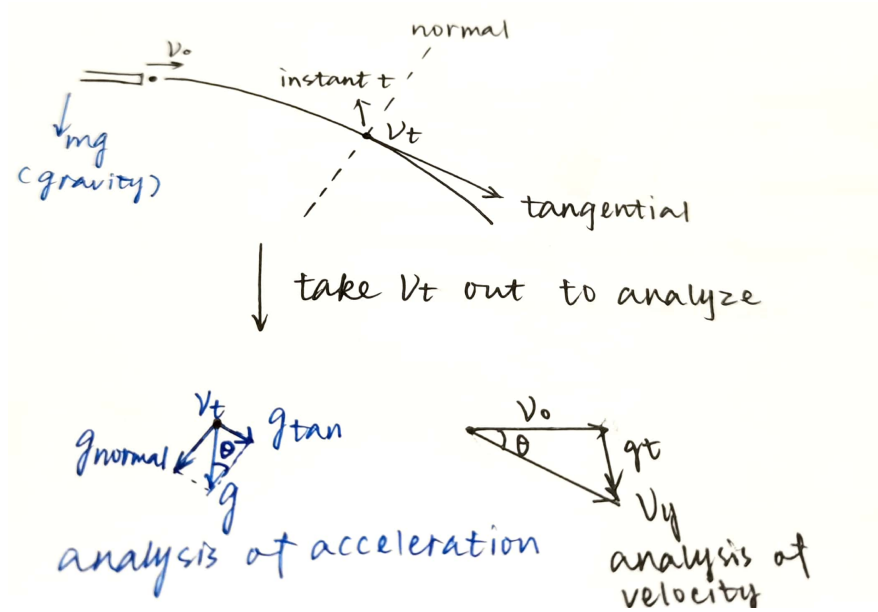 normal
V₀
instant t
Vt
mg
(gravity)
tangential
take Vt out to analyze
Vt
gtan
gnormal
θ
g
analysis of acceleration
V₀
θ
gt
Vy
analysis of
velocity